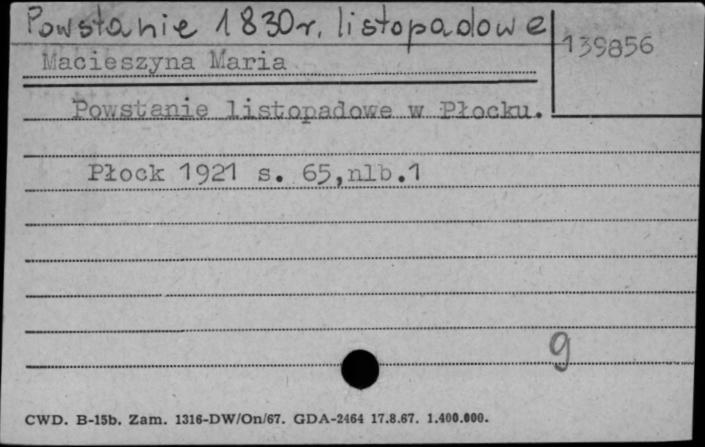 Powstanie 1830r. listopadowe
139856
Macieszyna Maria
Powstanie listopadowe w Płocku.
Płock 1921 s. 65,nlb.1
g
CWD. B-15b. Zam. 1316-DW/On/67. GDA-2464 17.8.67. 1.400.000.